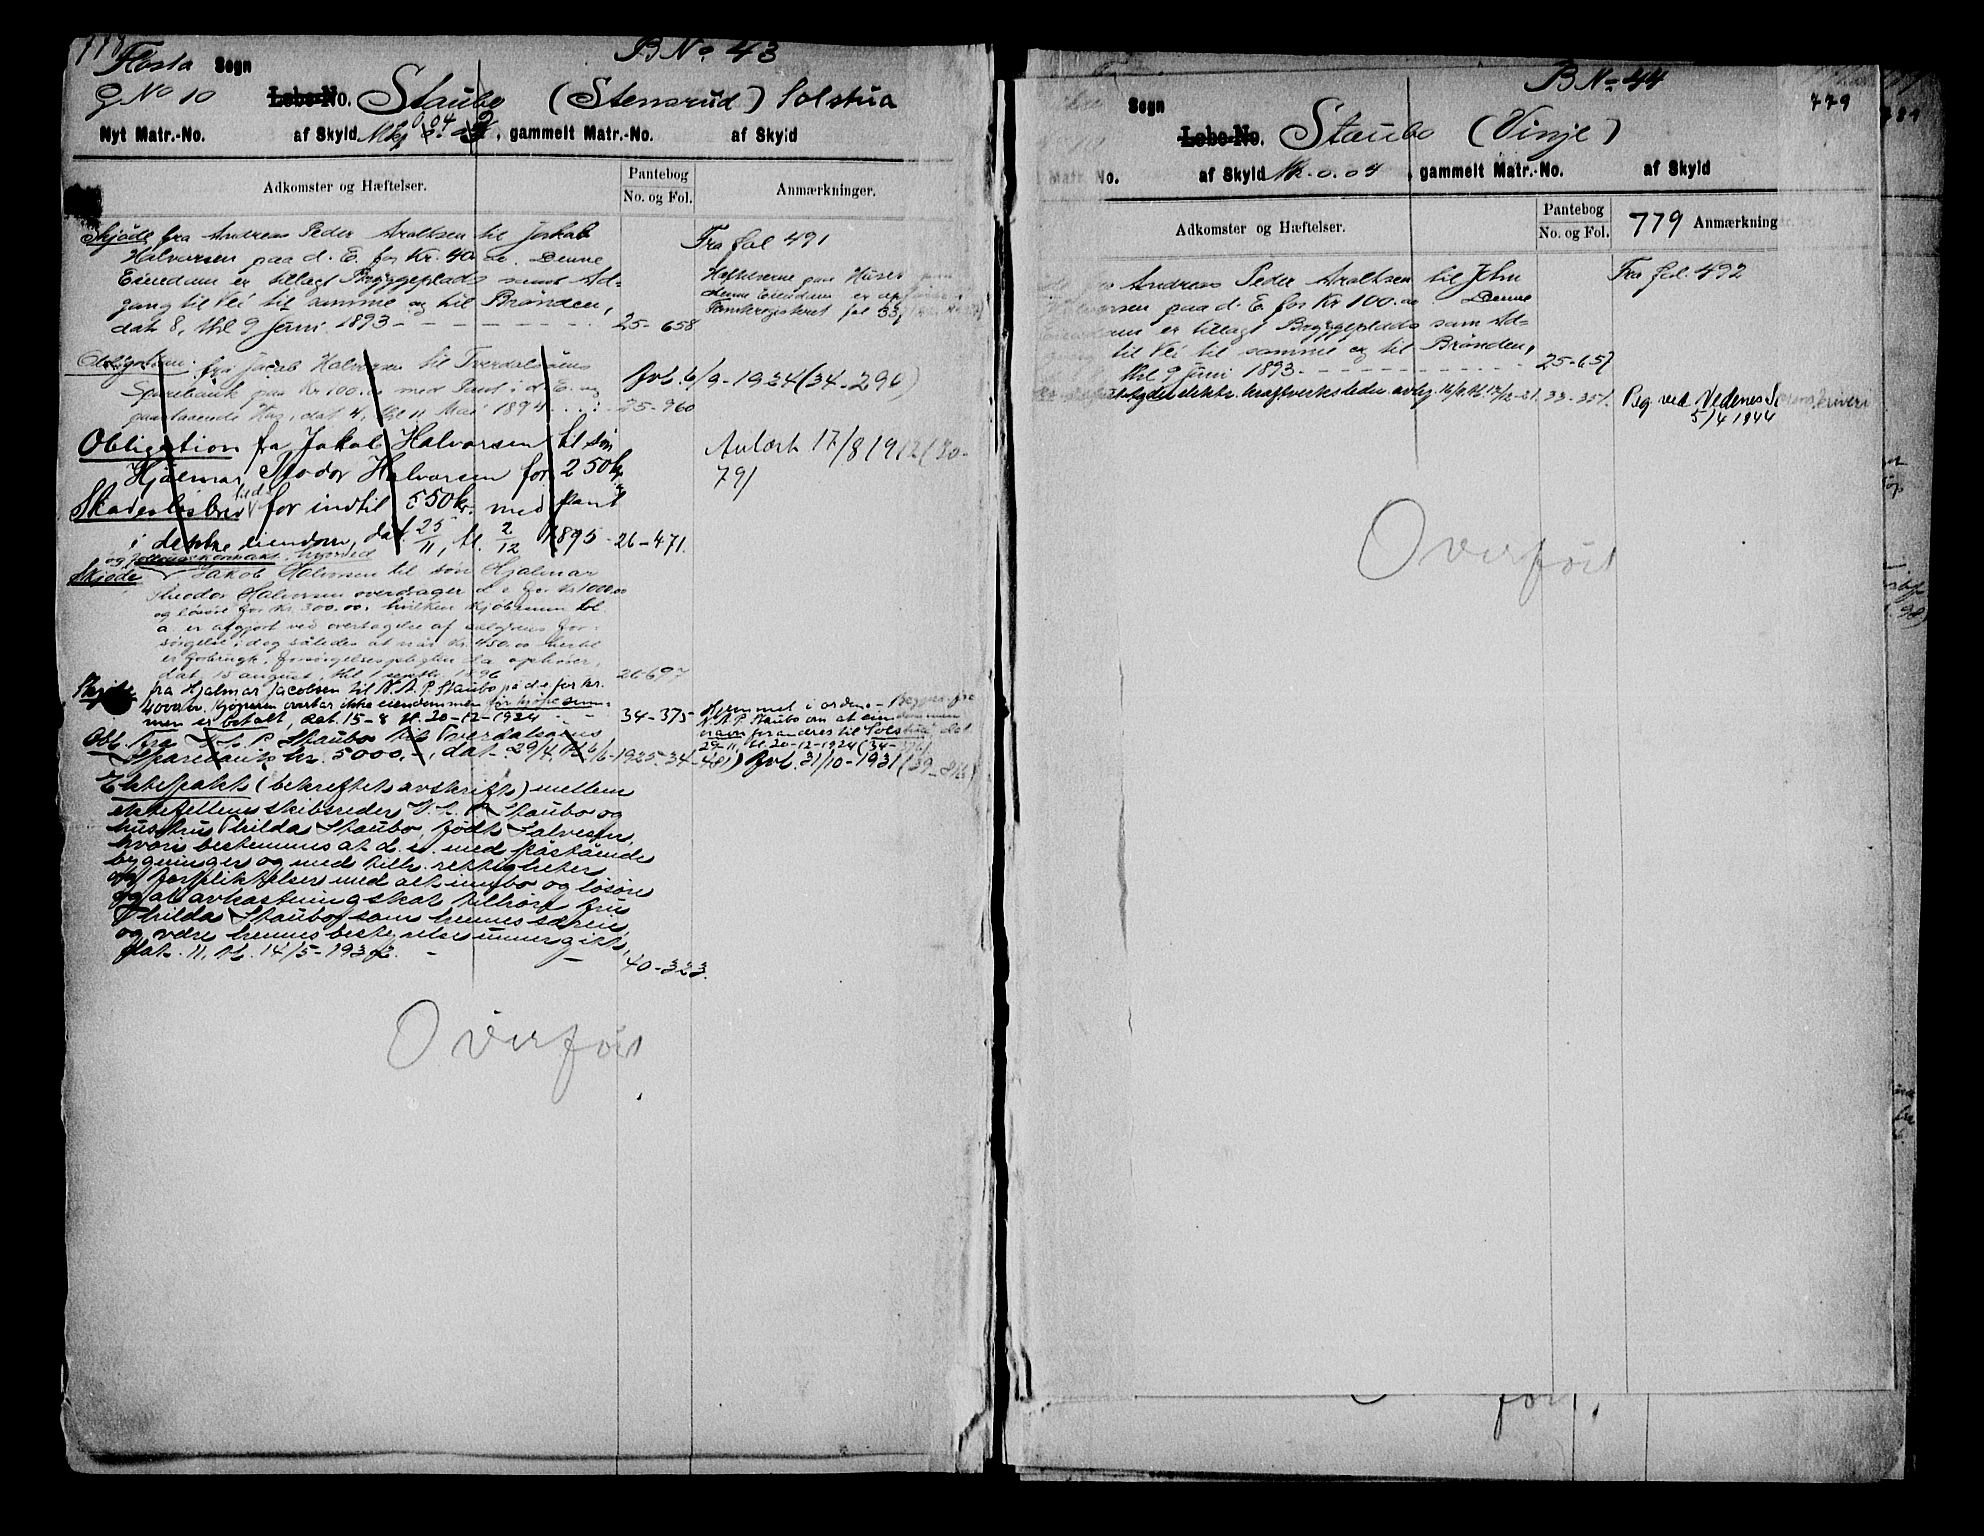 778
Flosta Sogn
B No 43
G No 10 Løbe-No. Staubo (Stensrud) Solstua
0.04
Nyt Matr.-No. af Skyld Mk , gammelt Matr.-No. af Skyld
Adkomster og Hæftelser.
Pantebog
No. og Fol.
Anmærkninger.
Skjøde fra Andreas Peder Araltsen til Jakob
Halvorsen paa d. E. for Kr. 40. Denne
Eiendom er tillagt Byggeplads samt Ad-
gang til Vei til samme og til Brønden,
dat 8, thl 9 Juni 1893 - - - - 25-658
Fra fol 491
Hæftelserne paa Huset
denne Eiendom er
Panteregisteret fol 33
Obligation fra Jacob Halvorsen til Tverdalsøens
Sparebank paa Kr 100.00 med Pant i d. E. og
paastaaende Hus, dat 4, thl 11 Mai 1894 25-960
Avl. 6/9-1924 (34-296)
Obligation fra Jakob Halvorsen til søn
Hjalmar Teodor Halvorsen for 250 kr
Skadesløsbrev for indtil 550 kr. med pant
i dette eiendom, dat. 25/11, tl. 2/12 1895 - 26-471.
Avlæst 17/8 1912 (30-
79)
og
Skjøde Jakob Halvorsen til søn Hjalmar
Theodor Halvorsen overdrager d. e. for Kr 1000.00
og løsøre for kr. 300.00. hvilken kjøbesum bl.
a. er afgjort ved overtagelse af sælgerens for-
sørgelse; dog således at når kr. 450.00 hertil
er forbrugt, forsørgelsespligten da ophører,
dat. 15 august, thl 1 septbr. 1896 26-697
Skjøte fra Hjalmar Jacobsen til N. A. P. Staubo på d. e. for kr.
4000.00. Kjøperen overtar ikke eiendommen før kjøpesum-
men er betalt, dat. 15-8 tl. 20-12-1924 - - 34-375
Hjemmel i orden. - Begjæring fra
N. A. P. Staubo om at eiendommens
navn forandres til Solstua, dat
29-11, tl. 20-12-1924 (34-376)
Obl. fra N. A. P. Staubo til Tverdalsøens
Sparebank kr. 5000.-, dat. 29/4, tl. 6/6-1925. 34-481) Avl. 31/10-1931 (39-
Ektepakt (bekreftet avskrift) mellem
ektefellene skibsreder N. A. P. Staubo og
hustru Thilda Staubo, født Salvesen,
hvori bestemmes at d. e. med påstående
bygninger og med tilh. rettigheter
og forpliktelser med alt innbo og løsøre
og at avkastning skal tilhøre fru
Thilda Staubo som hennes særeie,
og være hennes bestyrelse unnergitt,
dat. 11, tl. 14/5-1932. - - 40-323.
Overført
B No 44
779
Sogn
Løbe-No. Staubo (Vinje)
Matr. No. af Skyld Mk. 0.04 , gammelt Matr.-No. af Skyld
Adkomster og Hæftelser.
Pantebog
No. og Fol.
779 Anmærkning
Andreas Peder Araltsen til John
Halvorsen paa d. E. for Kr 100.00 Denne
Eiendom er tillagt Byggeplads som Ad-
til Vei til samme og til Brønden,
thl 9 Juni 1893 - - - - 25-657
Fra fol. 492
elektr. kraftverks leder. avlyg. 16/9, tl. 17/12-21. 33-351.
Beg ved Nedenes Sorenskriveri
5/4 1944
Overført
før